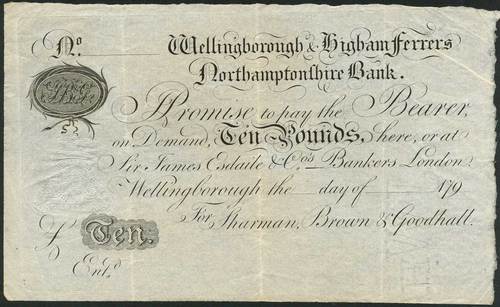 No.
Wellingborough & Higham Ferrers
Northamptonshire Bank.
I Promise to pay the Bearer,
on Demand, Ten Pounds, here, or at
Sir James Esdaile & Co's Bankers London
Wellingborough the day of 179
For Sharman, Brown & Goodhall.
£ Ten.
Entd.